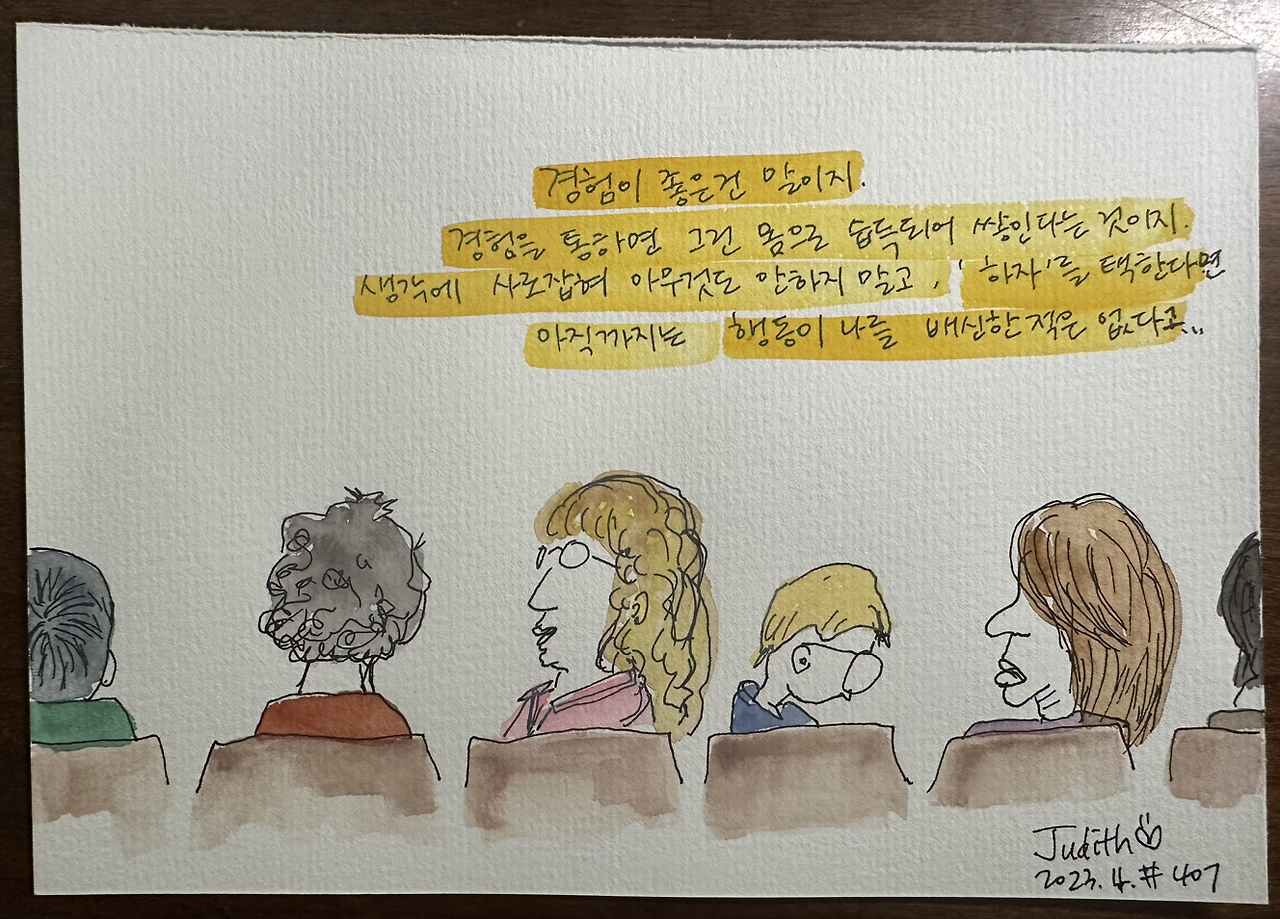 경험이 좋은건 말이지.
경험을 통하면 그건 몸으로 습득되어 쌓인다는 것이지.
생각에 사로잡혀 아무것도 안하지 말고, '하자'를 택한다면
아직까지는 행동이 나를 배신한 적은 없다고...
Judith
2023.4.#407